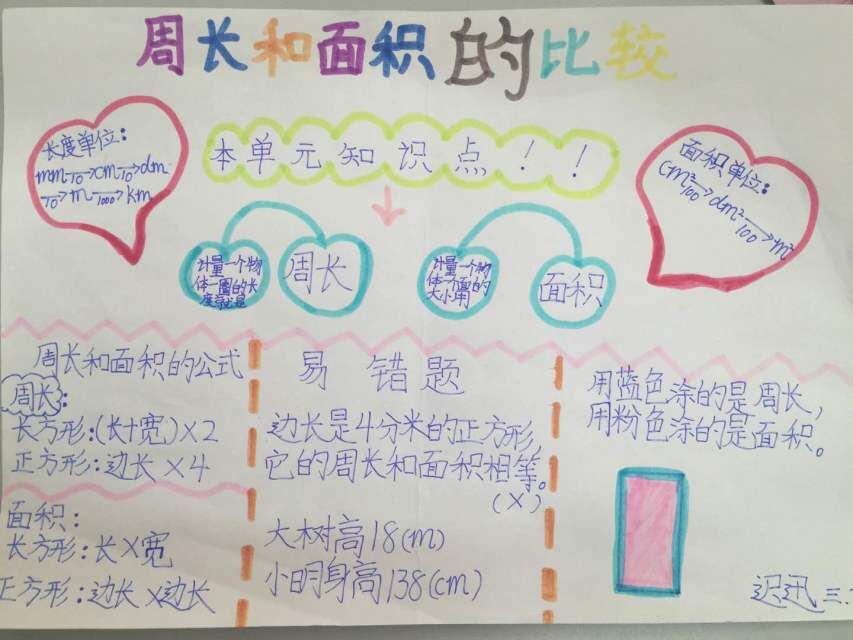 周长和面积的比较
长度单位:
mm 10→cm 10→dm
10→m 1000→km
本单元知识点!!
面积单位:
cm² 100→dm² 100→m²
计量一个物
体一圈的长
度就是
周长
计量一个物
体一个面的
大小用
面积
周长和面积的公式
周长:
长方形:(长+宽)×2
正方形:边长×4
面积:
长方形:长×宽
正方形:边长×边长
易错题
边长是4分米的正方形,
它的周长和面积相等。
(×)
大树高18(m)
小明身高138(cm)
用蓝色涂的是周长,
用粉色涂的是面积。
迟迅 三.